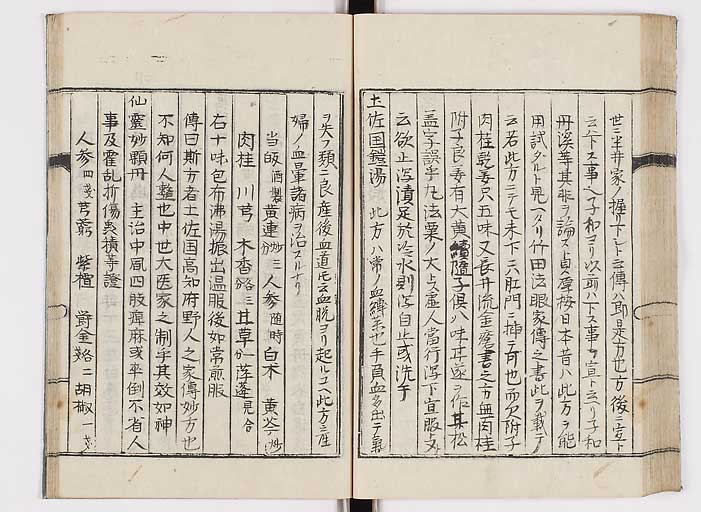 世ニ半井家ノ握リ下シト云傳ハ即是方也方後ニ宣下
云下ス事ハ子和ヨリ以前ハ下ス事ヲ宣ト云リ子和
丹溪等其非ヲ論ズ貞厚按日本昔ハ此方ヲ能
用試タルト見ヘタリ竹田法眼家傳之書此ヲ載テ
云若此方ニテモ未下ハ肛門ニ挿テ可也而欠附子
肉桂乾姜只五味又長井流金瘡書之方無肉桂
附子良姜有大黄續隨子俱八味甚遂ヲ作其松
孟字誤乎九法栗ノ大与虚人當行泻下宣服与
云欲止泻漬足於冷水則泻自止或洗手
土佐国鎧湯 此方ハ常ノ血縛薬也手負血多出テ氣
ヲ失フ類ニ良産後血道乇云血脱ヨリ起ルユヘ此方ニ産
婦ノ血暈諸病ヲ治スルナリ
当皈 酒製 黄連 炒 三 人参 随時 白朮 黄芩 炒
肉桂 川芎 木香 三 甘草 一 莲蓬 見合
右十味包布沸湯振出温服後如常煎服
傳曰斯方者土佐国高知府野人之家傳妙方也
不知何人盤也中世大医家之制乎其效如神
仙霊妙顆丹 主治中風四肢痺麻或卒倒不省人
事及霍乱折傷夷積等證
人参 四戔 芎藭 紫檀 欝金 二 胡椒 一戔